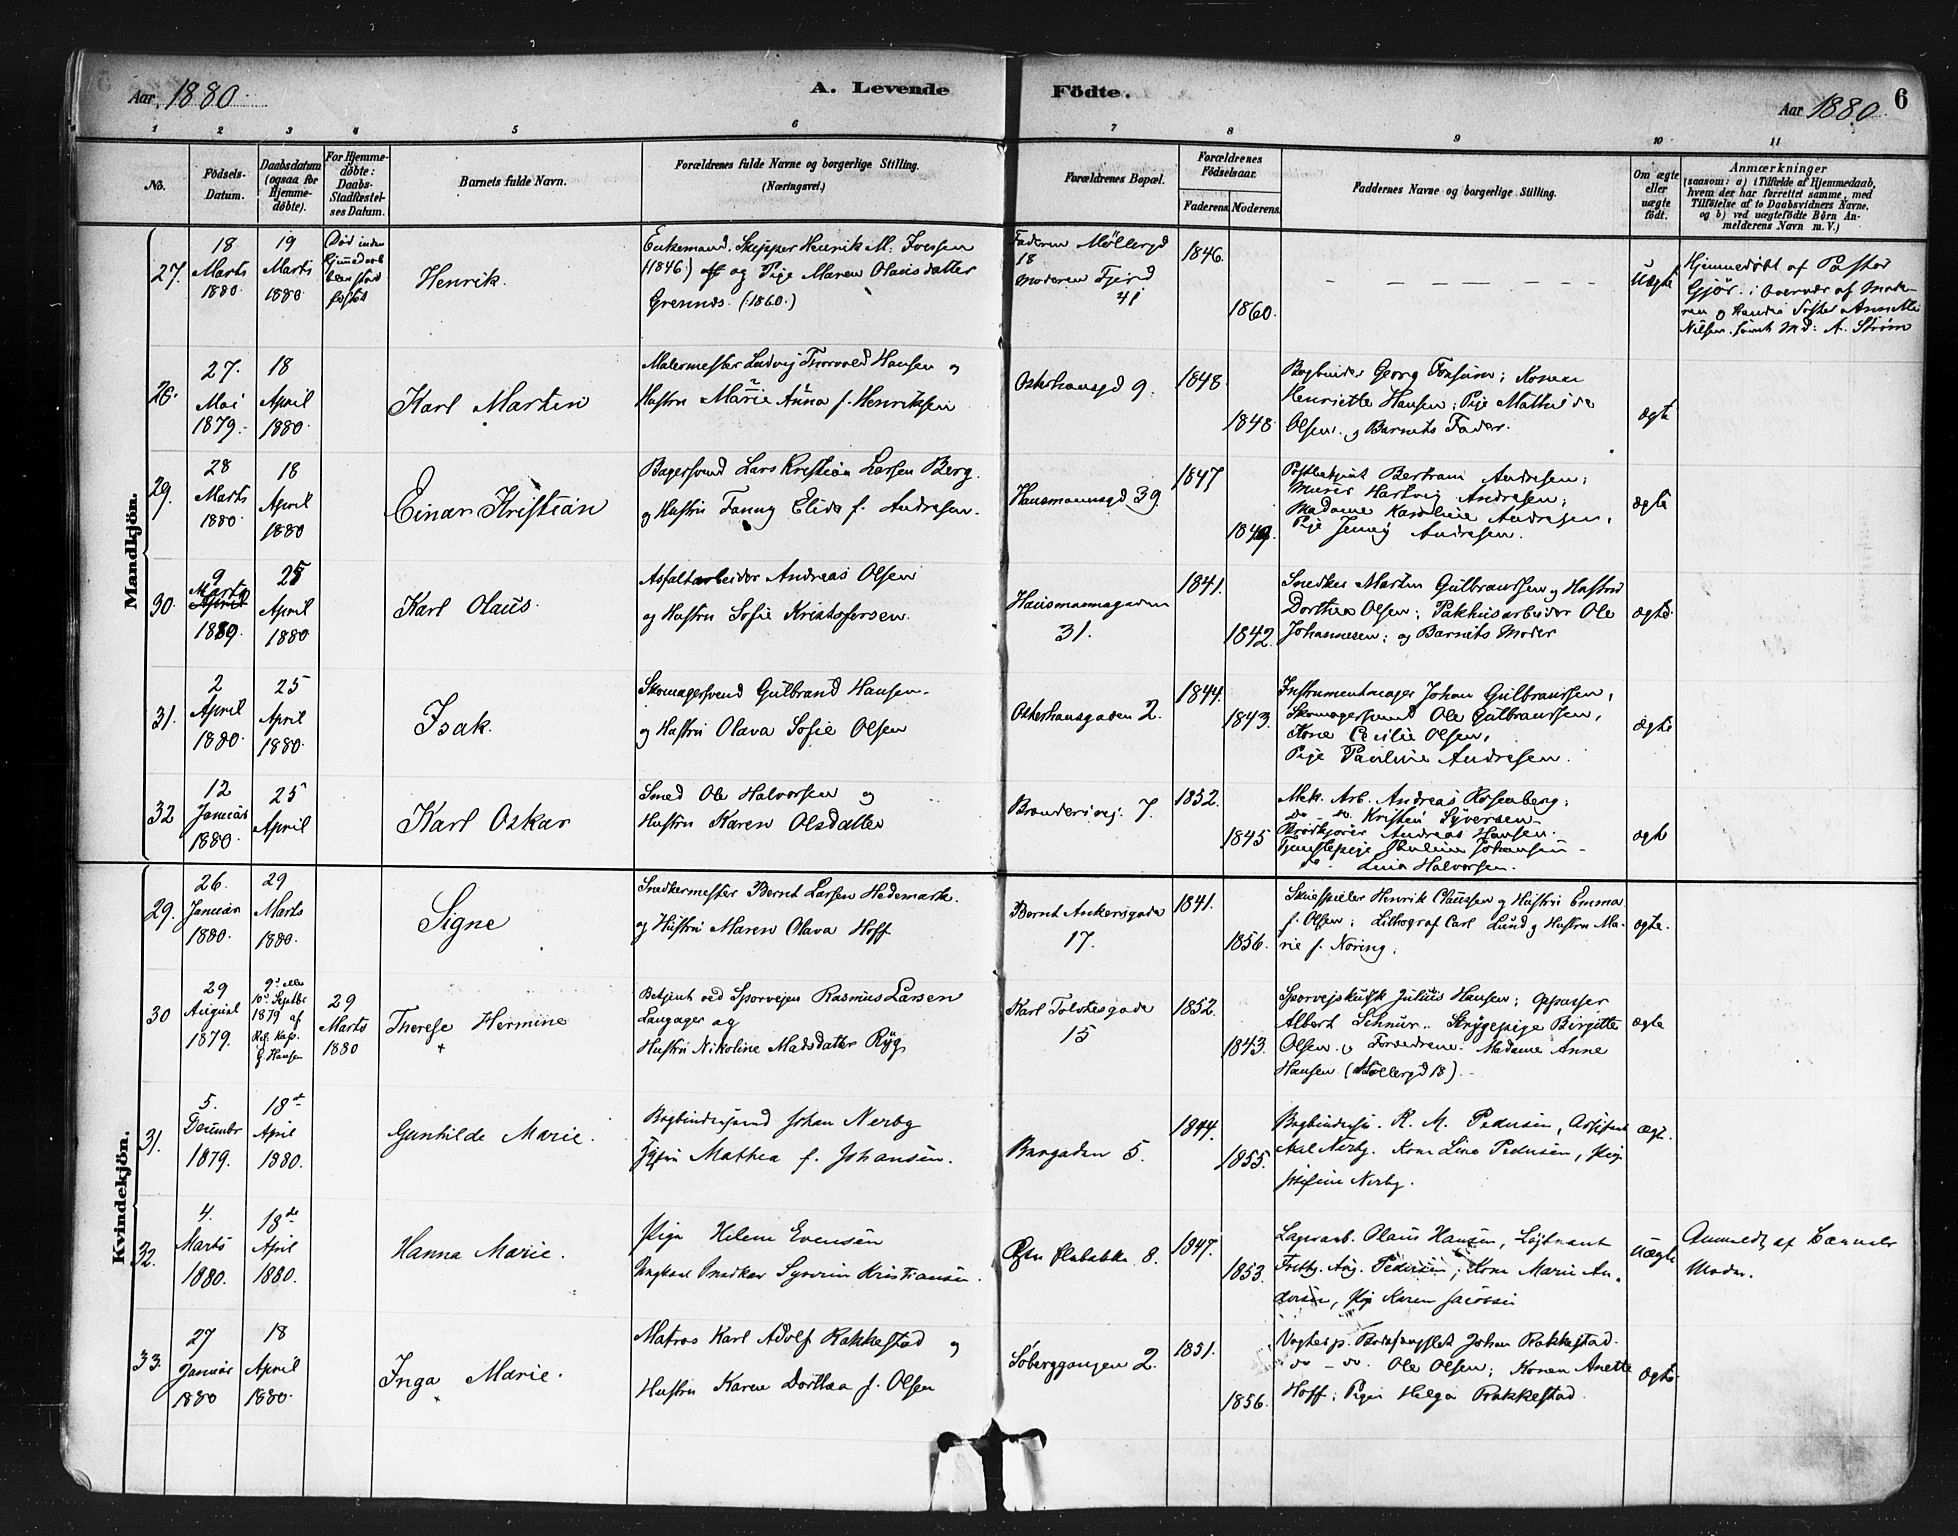 Aar 1880
A. Levende
Födte.
Aar 1880
6
1 2 3 4 5 6 7 8 9 10 11
No.
Födsels-
Datum.
Daabsdatum
(ogsaa for
Hjemme-
döbte).
For Hjemme-
döbte:
Daabs-
Stadfæstel-
ses Datum.
Barnets fulde Navn.
Forældrenes fulde Navne og borgerlige Stilling.
(Næringsvei.)
Forældrenes Bopæl.
Forældrenes
Födselsaar.
Faderens.
Moderens.
Faddernes Navne og borgerlige Stilling.
Om ægte
eller
uægte
födt.
Anmærkninger
(saasom: a) i Tilfælde af Hjemmedaab,
hvem der har forrettet samme, med
Tilföielse af to Daabsvidners Navne,
og b) ved uægtefödte Börn An-
melderens Navn m. V.)
Mandkjön.
27.
18
Marts
1880.
19
Marts
1880.
Död inden
Henrik.
Enkemand, Skipper Henrik M. Iversen
(1846) og Pige Maren Olausdatter
Grennes. (1860.)
Faderen Möllergd
18
Moderen
41
1846.
1860.
Uægte
Hjemmedöbt af Pastor
Gjör. i Overvær af Mode-
ren og Søster Annette
Nilsen samt Md: A. Ström
28.
27.
Mai
1879.
18
April
1880.
Karl Martin
Malermester Ludvig Thorvald Hansen og
Hustru Marie Anna f. Henriksen
Osterhausgd 9.
1848.
1848
Bogbinder Georg Konen
Henriette Hansen; Pige Mathilde
Olsen. og Barnets Fader.
ægte
29.
28
Marts
1880.
18
April
1880
Einar Kristian
Bagersvend Lars Kristian Larsen Berg
og Hustru Fanny Elida f. Andresen.
Hausmannsgd 39.
1847
1849
Postbetjent Bertram Andresen;
Murer Hartvig Andresen;
Madame Karoline Andresen,
Pige Jenny Andresen.
ægte
30.
9
Marts
April
1880.
25
April
1880
Karl Olaus.
Asfaltarbeider Andreas Olsen
og Hustru Sofie Kristofersen.
Hausmannsgaden
31.
1841.
1842.
Snedker Martin Gulbranssen og Hustru
Dorthea Olsen; Pakhusarbeider Ole
Johannesen; og Barnets Moder
ægte
31.
2
April
1880.
25
April
1880.
Isak.
Skomagersvend Gulbrand Hansen.
og Hustru Olava Sofie Olsen
Osterhausgaden 2.
1844.
1843.
Instrumentmager Johan Gulbranssen,
Skomagersvend Ole Gulbranssen,
Kone Cecilie Olsen,
Pige Pauline Andresen.
ægte
32
12
Januar
1880.
25
April
Karl Oskar
Smed Ole Halvorsen og
Hustru Karen Olsdatter
7.
1852.
1845
Mek. Arb. Andreas Rosenberg;
do - do. Kristen Syversen
Brödkjörer Andreas Hansen.
Tjenestepige Pauline Johansen -
do - Lina Halvorsen.
ægte
Kvindekjön.
29.
26.
Januar
1880.
29
Marts
1880.
Signe
Snedkermester Bernt Larsen Hedemark.
og Hustru Maren Olava Hoff
Bernt Ankersgade
17.
1841.
1856.
Skuespiller Henrik Claussen og Hustru Emma
f. Olsen; Lithograf Carl Lund og Hustru Ma-
rie f. Noring.
ægte.
30
29
August
1879.
9de eller
10de Septbr
1879 af
G. Hansen
29
Marts
1880
Therese Hermine
Betjent ved Sporvejen Rasmus Larsen
Langager og
Hustru Nikoline Madsdatter Ryg
Karl Tolvtesgade
15
1852.
1843.
Sporvejskusk Julius Hansen; Oppasser
Albert Schnur. Strygepige Birgitte
Olsen. og Forældrene. Madame Anne
Hansen (Möllergd 18).
ægte
31.
5.
Decembr
1879.
18de
April
1880.
Gunhilde Marie.
Bogbindersvend Johan Nerby
Hustru Mathea f. Johansen.
5.
1844.
1855.
Bogbindersv. R. M. Pedersen, Assistent
Axel Nerby. Kone Line Pedersen, Pige
Josefine Nerby.
ægte.
32.
4.
Marts
1880.
18de
April
1880.
Hanna Marie.
Pige Helene Evensen
Ungkarl Snedker Syverin Kristiansen.
8.
1847.
1853.
Lagerarb. Olaus Hansen, Löjtnant
Aug. Pedersen, Kone Marie An-
dersen, Pige Karen Jacobsen
Uægte
Anmeldt af Barnets
Moder.
33.
27
Januar
1880
18
April
1880.
Inga Marie.
Matros Karl Adolf Rakkestad og
Hustru Karen Dorthea f. Olsen
Soberggangen 2.
1851.
1856.
Bodsfængslet Johan Rakkestad.
do - do. Ole Olsen; Konen Anette
Hoff; Pigen Helga Rakkestad.
ægte